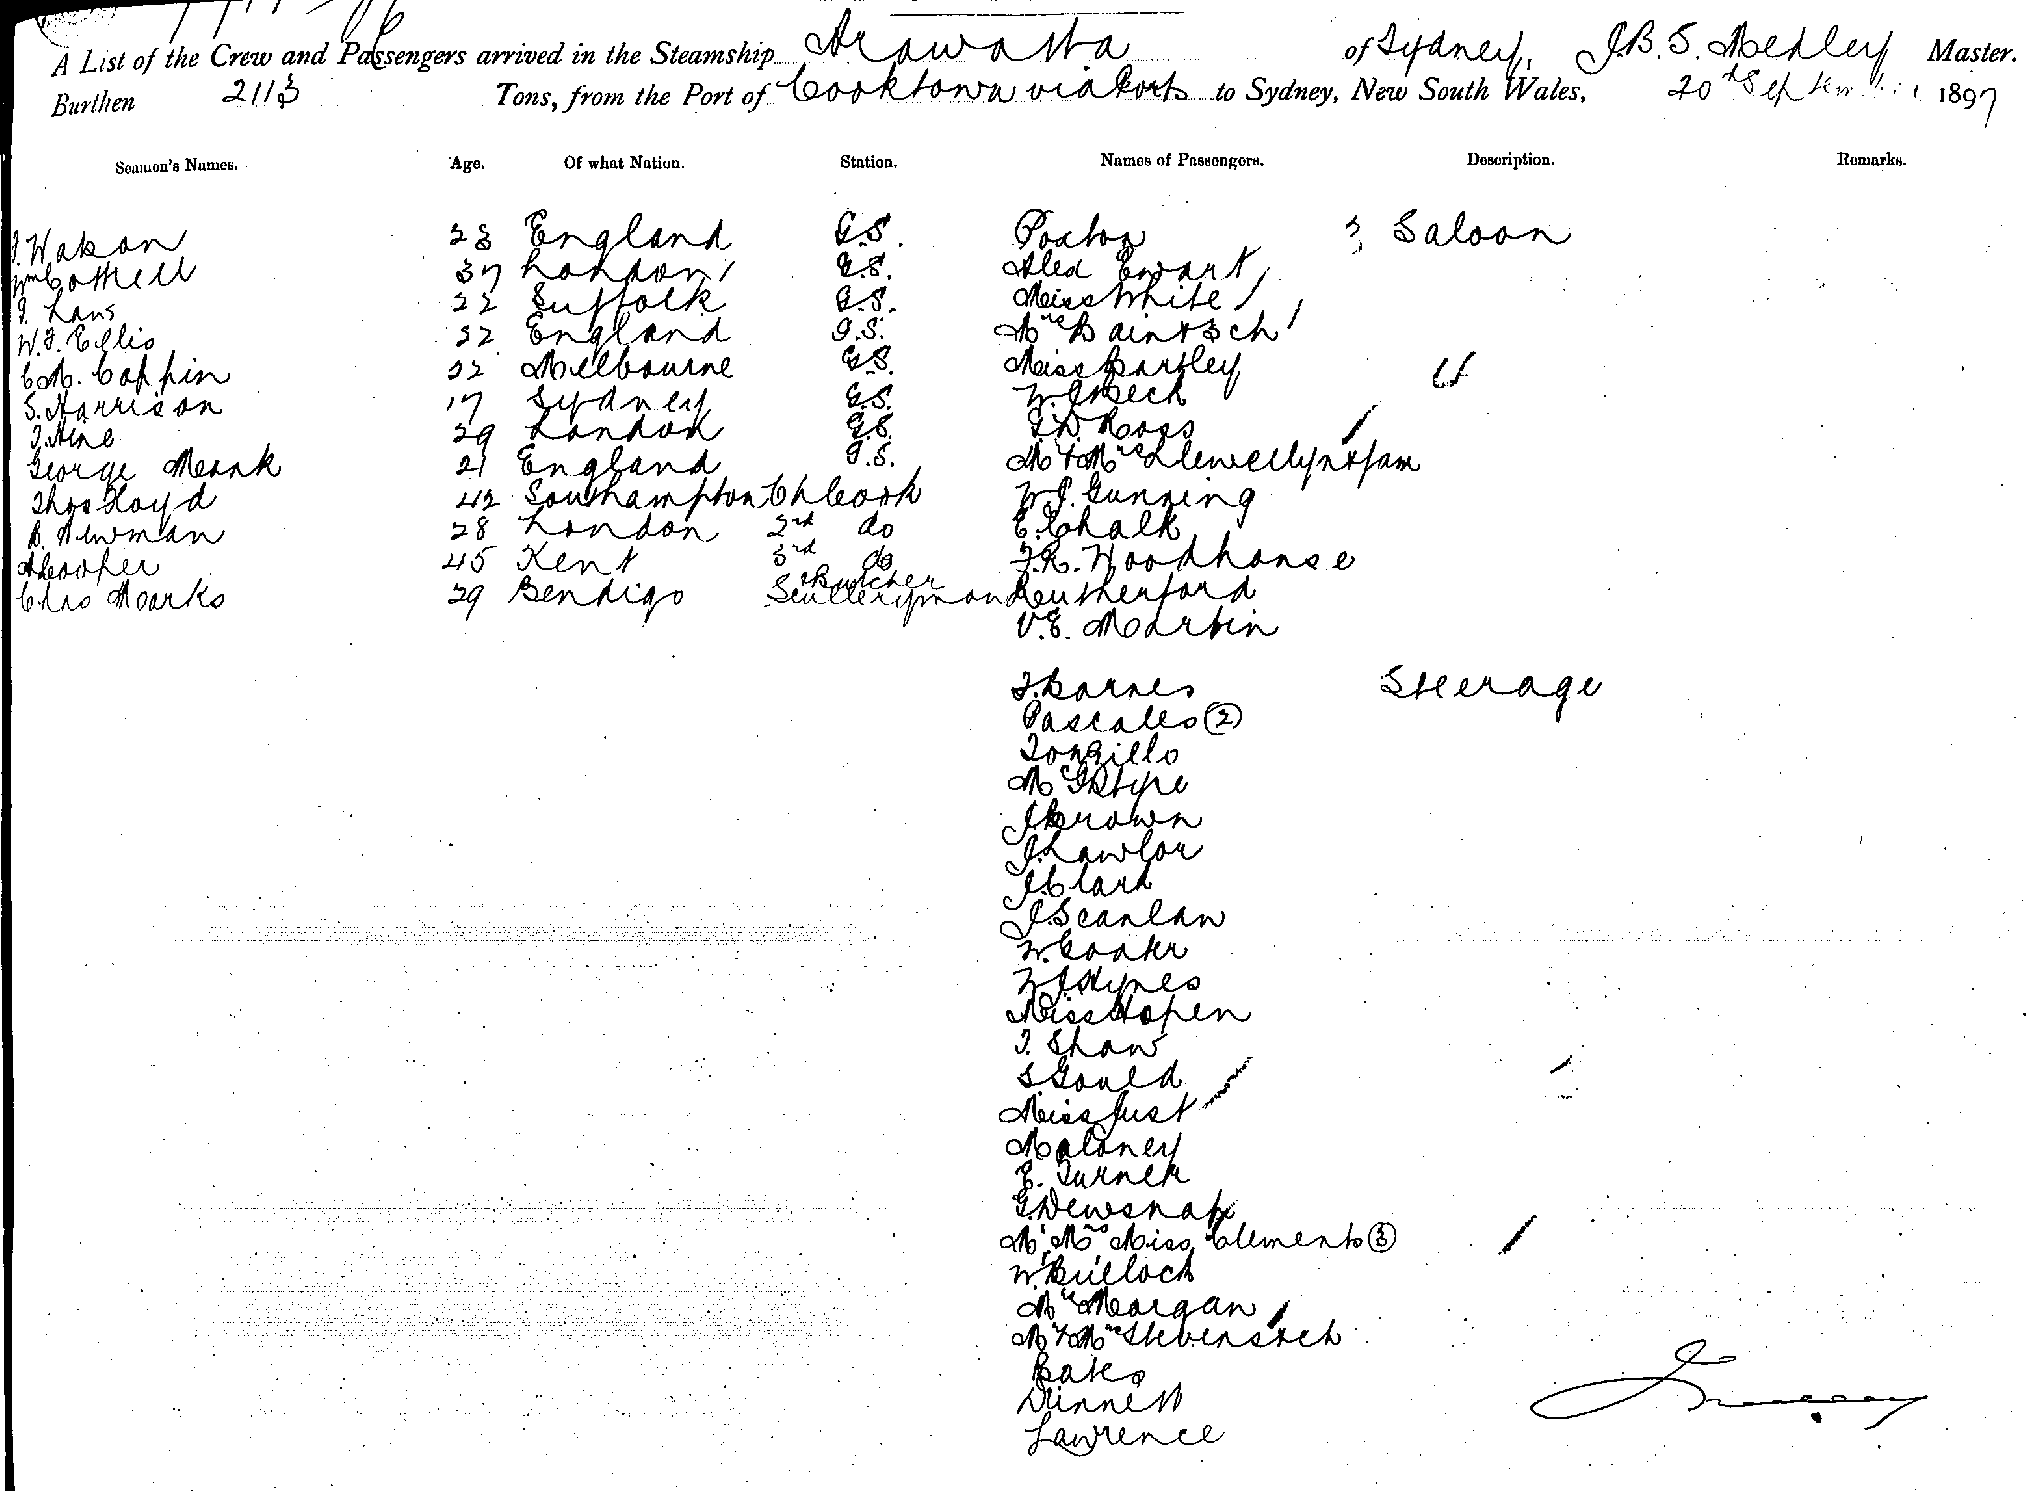 A List of the Crew and Passengers arrived in the Steamship Arawatta of Sydney, J.B.S. Medley Master.
Burthen 2113 Tons, from the Port of Cooktown via Ports to Sydney, New South Wales, 20th September 1897
Seamen's Names. Age. Of what Nation. Station. Names of Passengers. Description. Remarks.
23 England G.S. Poxton Saloon
Wm Cottrell 37 London G.S. Ewart
22 Suffolk G.S. Miss White
W.J. Ellis 22 England G.S. Mrs Bain & 3 ch
C.M. Coppin 22 Melbourne G.S. Miss Bartley
S. Harrison 17 Sydney G.S. W.
29 London G.S. G.D. Ross
George Monk 21 England G.S. Mr & Mrs Llewellyn & fam
Thos Loyd 42 Southampton Ch Cook W.J. Gunning
B. Newman 28 London 2nd do E. Chalk
A Cooper 45 Kent 3rd do F.R. Woodhouse
Chas Marks 29 Bendigo Butcher Sculleryman Rutherford
V.E. Martin
J. Barnes Steerage
Pascales (2)
Tongillo
McIntyre
J Brown
J. Lawlor
J. Clark
J. Scanlan
W. Cooker
W J Hynes
Miss Hopen
T. Shaw
S Gould
Miss Just
Maloney
E. Turner
G. Dewsnap
Mr, Mrs Miss Clements (3)
W. Bulloch
Mrs Morgan
Mr & Mrs Stevens & ch
Bates
Dinnett
Lawrence